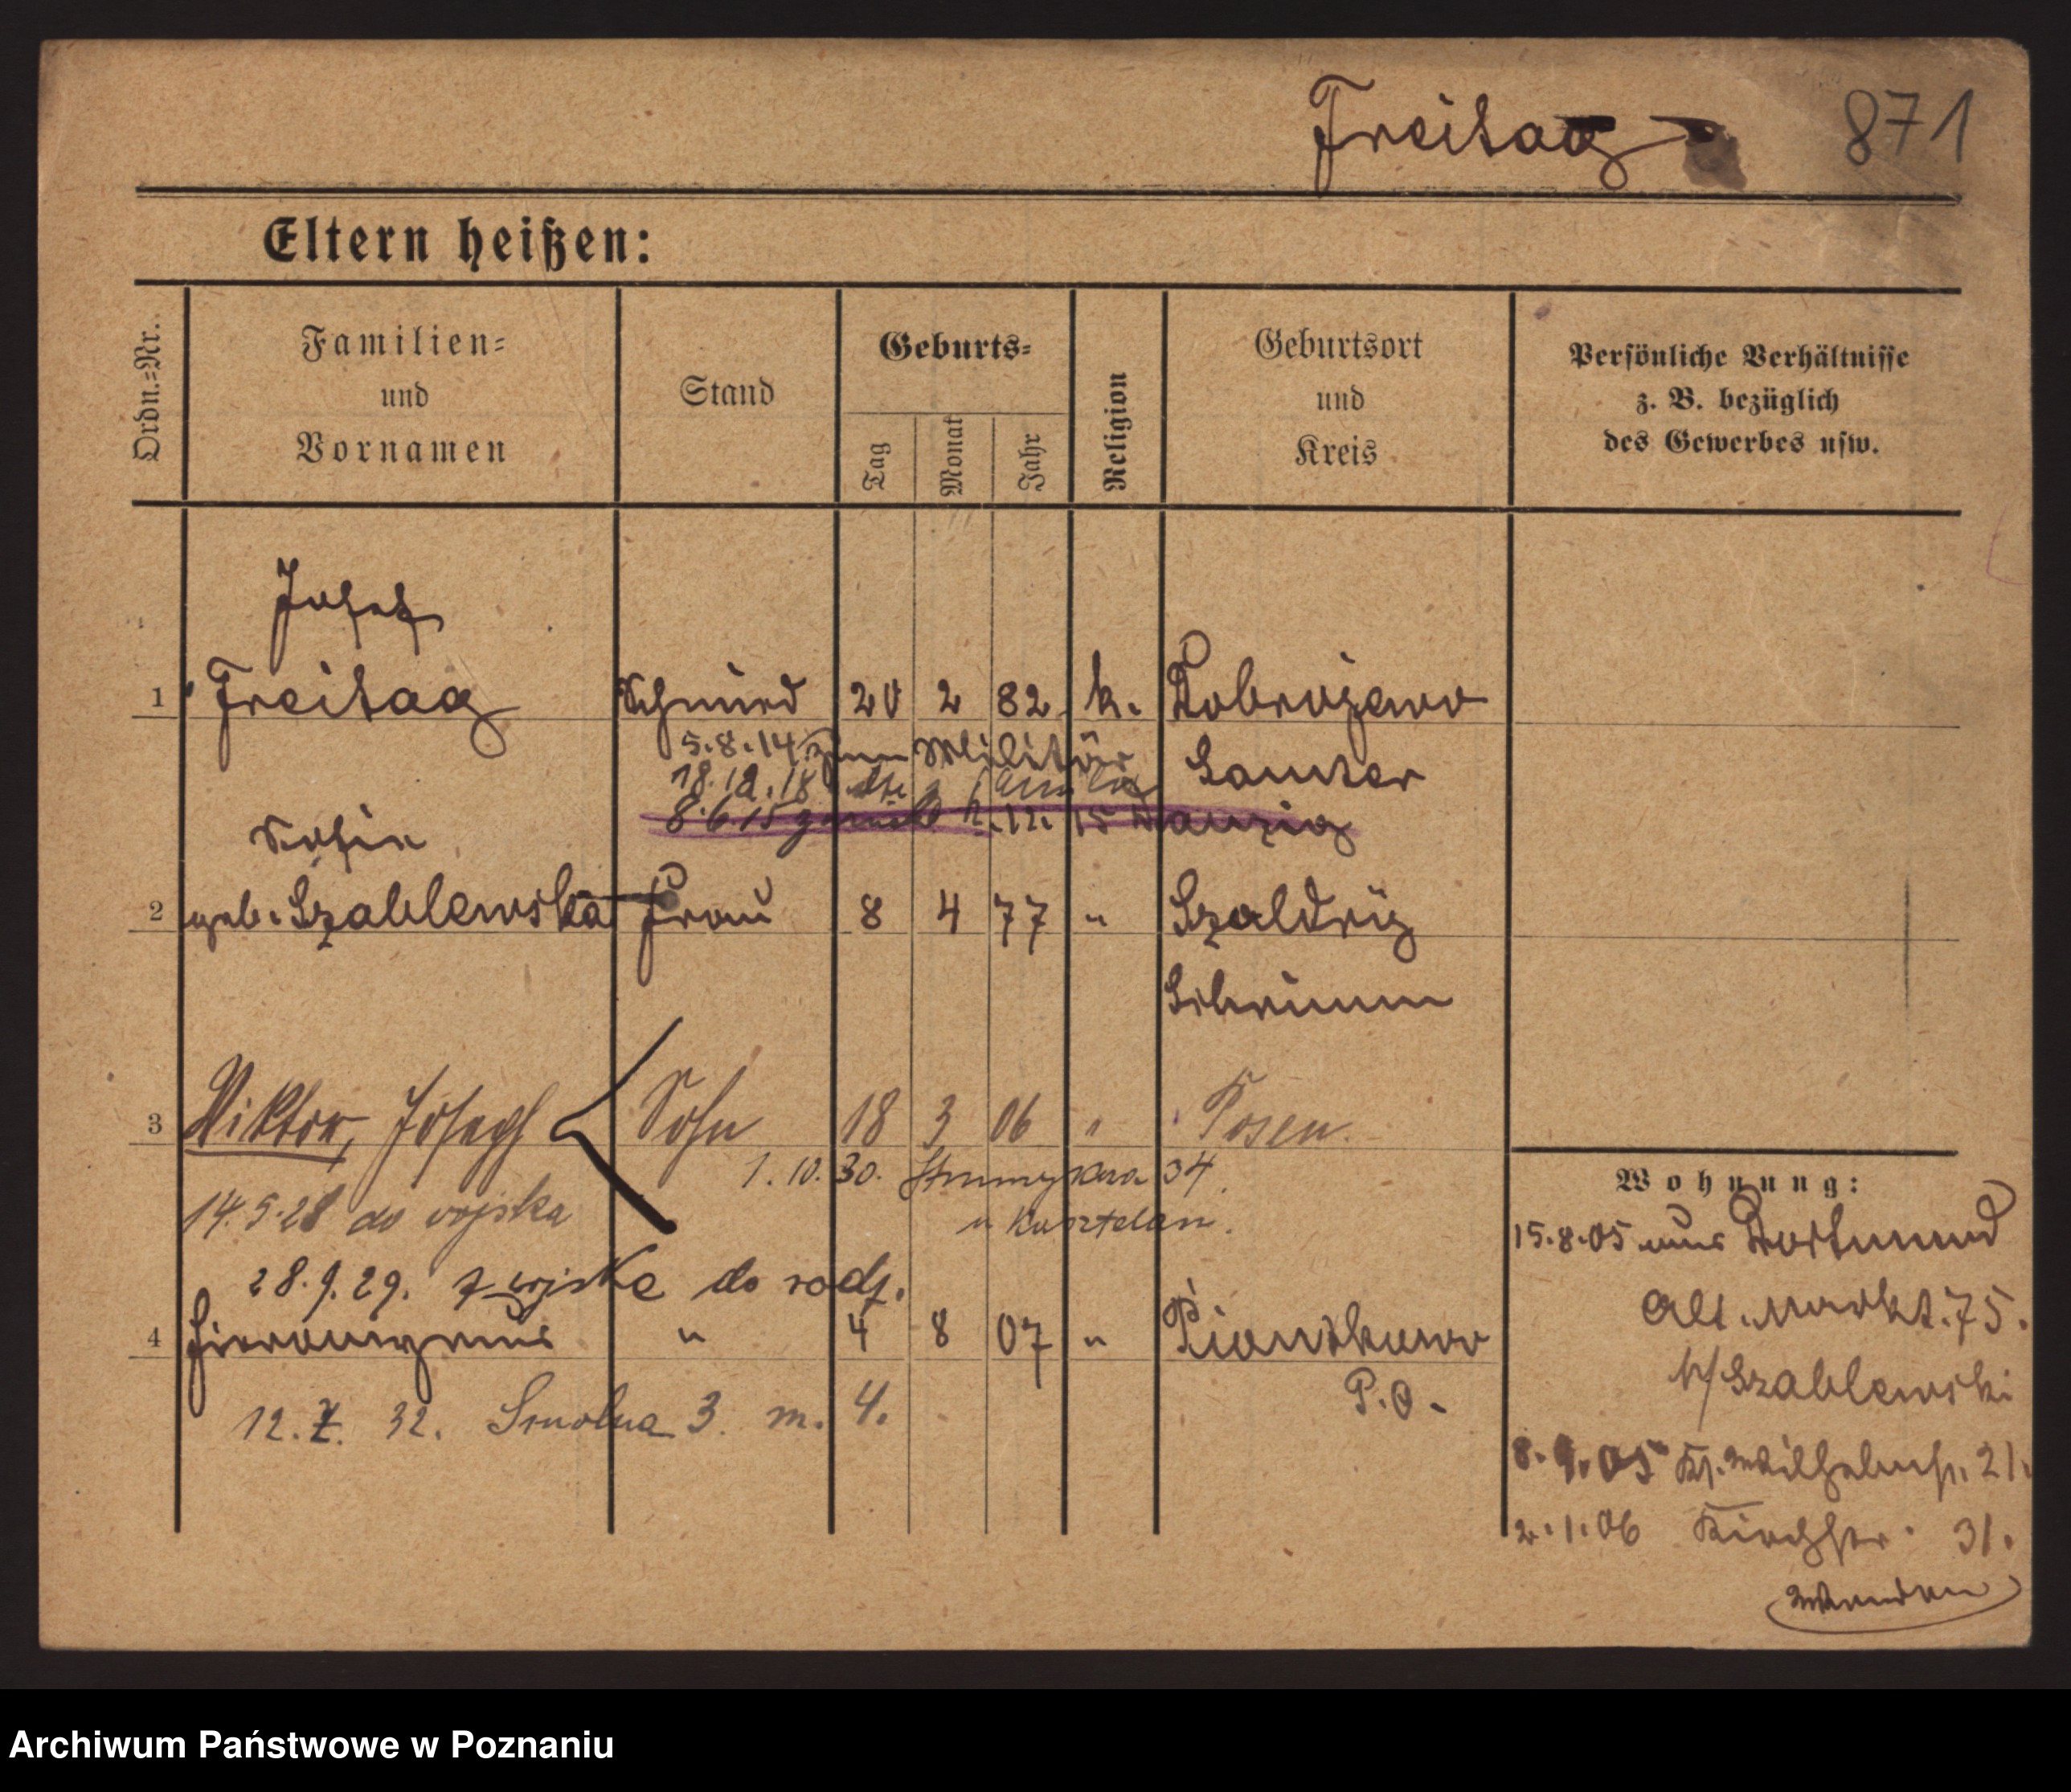 Freitag 871
Eltern heißen:
Ordn.=Nr.
Familien=
und
Vornamen
Stand
Geburts=
Tag
Monat
Jahr
Religion
Geburtsort
und
Kreis
Persönliche Verhältnisse
z. B. bezüglich
des Gewerbes usw.
Josef
1 Freitag Schmied 20 2 82 k. Dobrojewo
5.8.14 zum Militär Samter
18.12.18
8.6.15 12. 15 Danzig
Sofie
2 geb. Szablewska Frau 8 4 77 " Szoldry
Schrimm
3 Viktor, Joseph Sohn 18 3 06 " Posen.
1.10.30. 34
14.5.28 do wojska u Kasztelan.
28.9.29. z wojska do rodz.
4 Hieronymus " 4 8 07 " Piontkowo
P.O.
12. 32. Smolna 3 m. 4.
Wohnung:
15.8.05 aus Dortmund
Alt. Markt. 75.
b/Szablewski
8.9.05 Kl. 21.
2.1.06 Kirchstr. 31.
Wenden
Archiwum Państwowe w Poznaniu